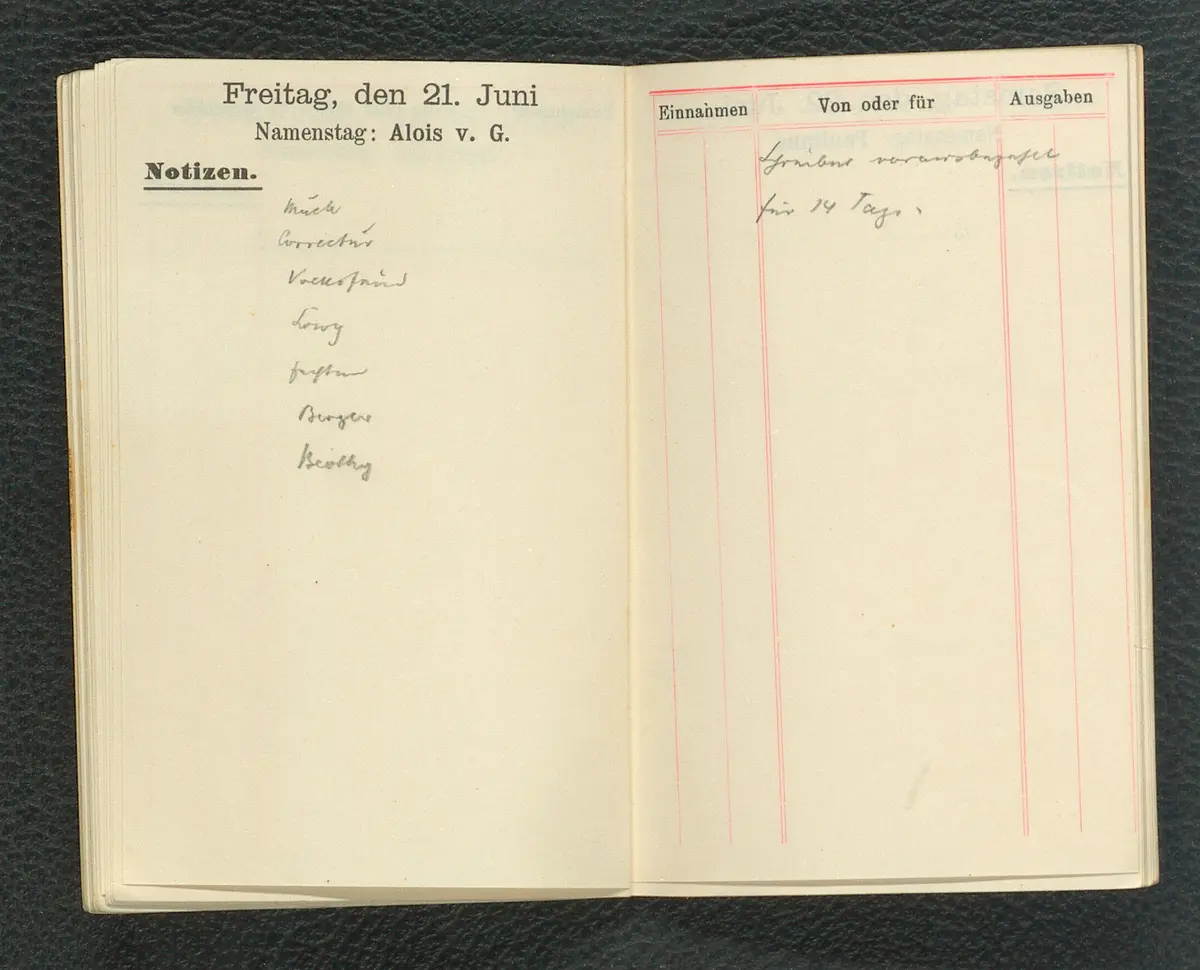 Freitag, den 21. Juni
Namenstag: Alois v. G.
Notizen.
Correctur
Löwy
fechten
Berger
Einnahmen
Von oder für
Ausgaben
Schreiber vorausbezahlt
für 14 Tage.